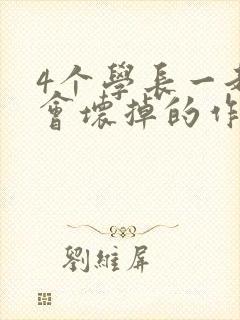 4个學長一起
會壞掉的作
劉維屏